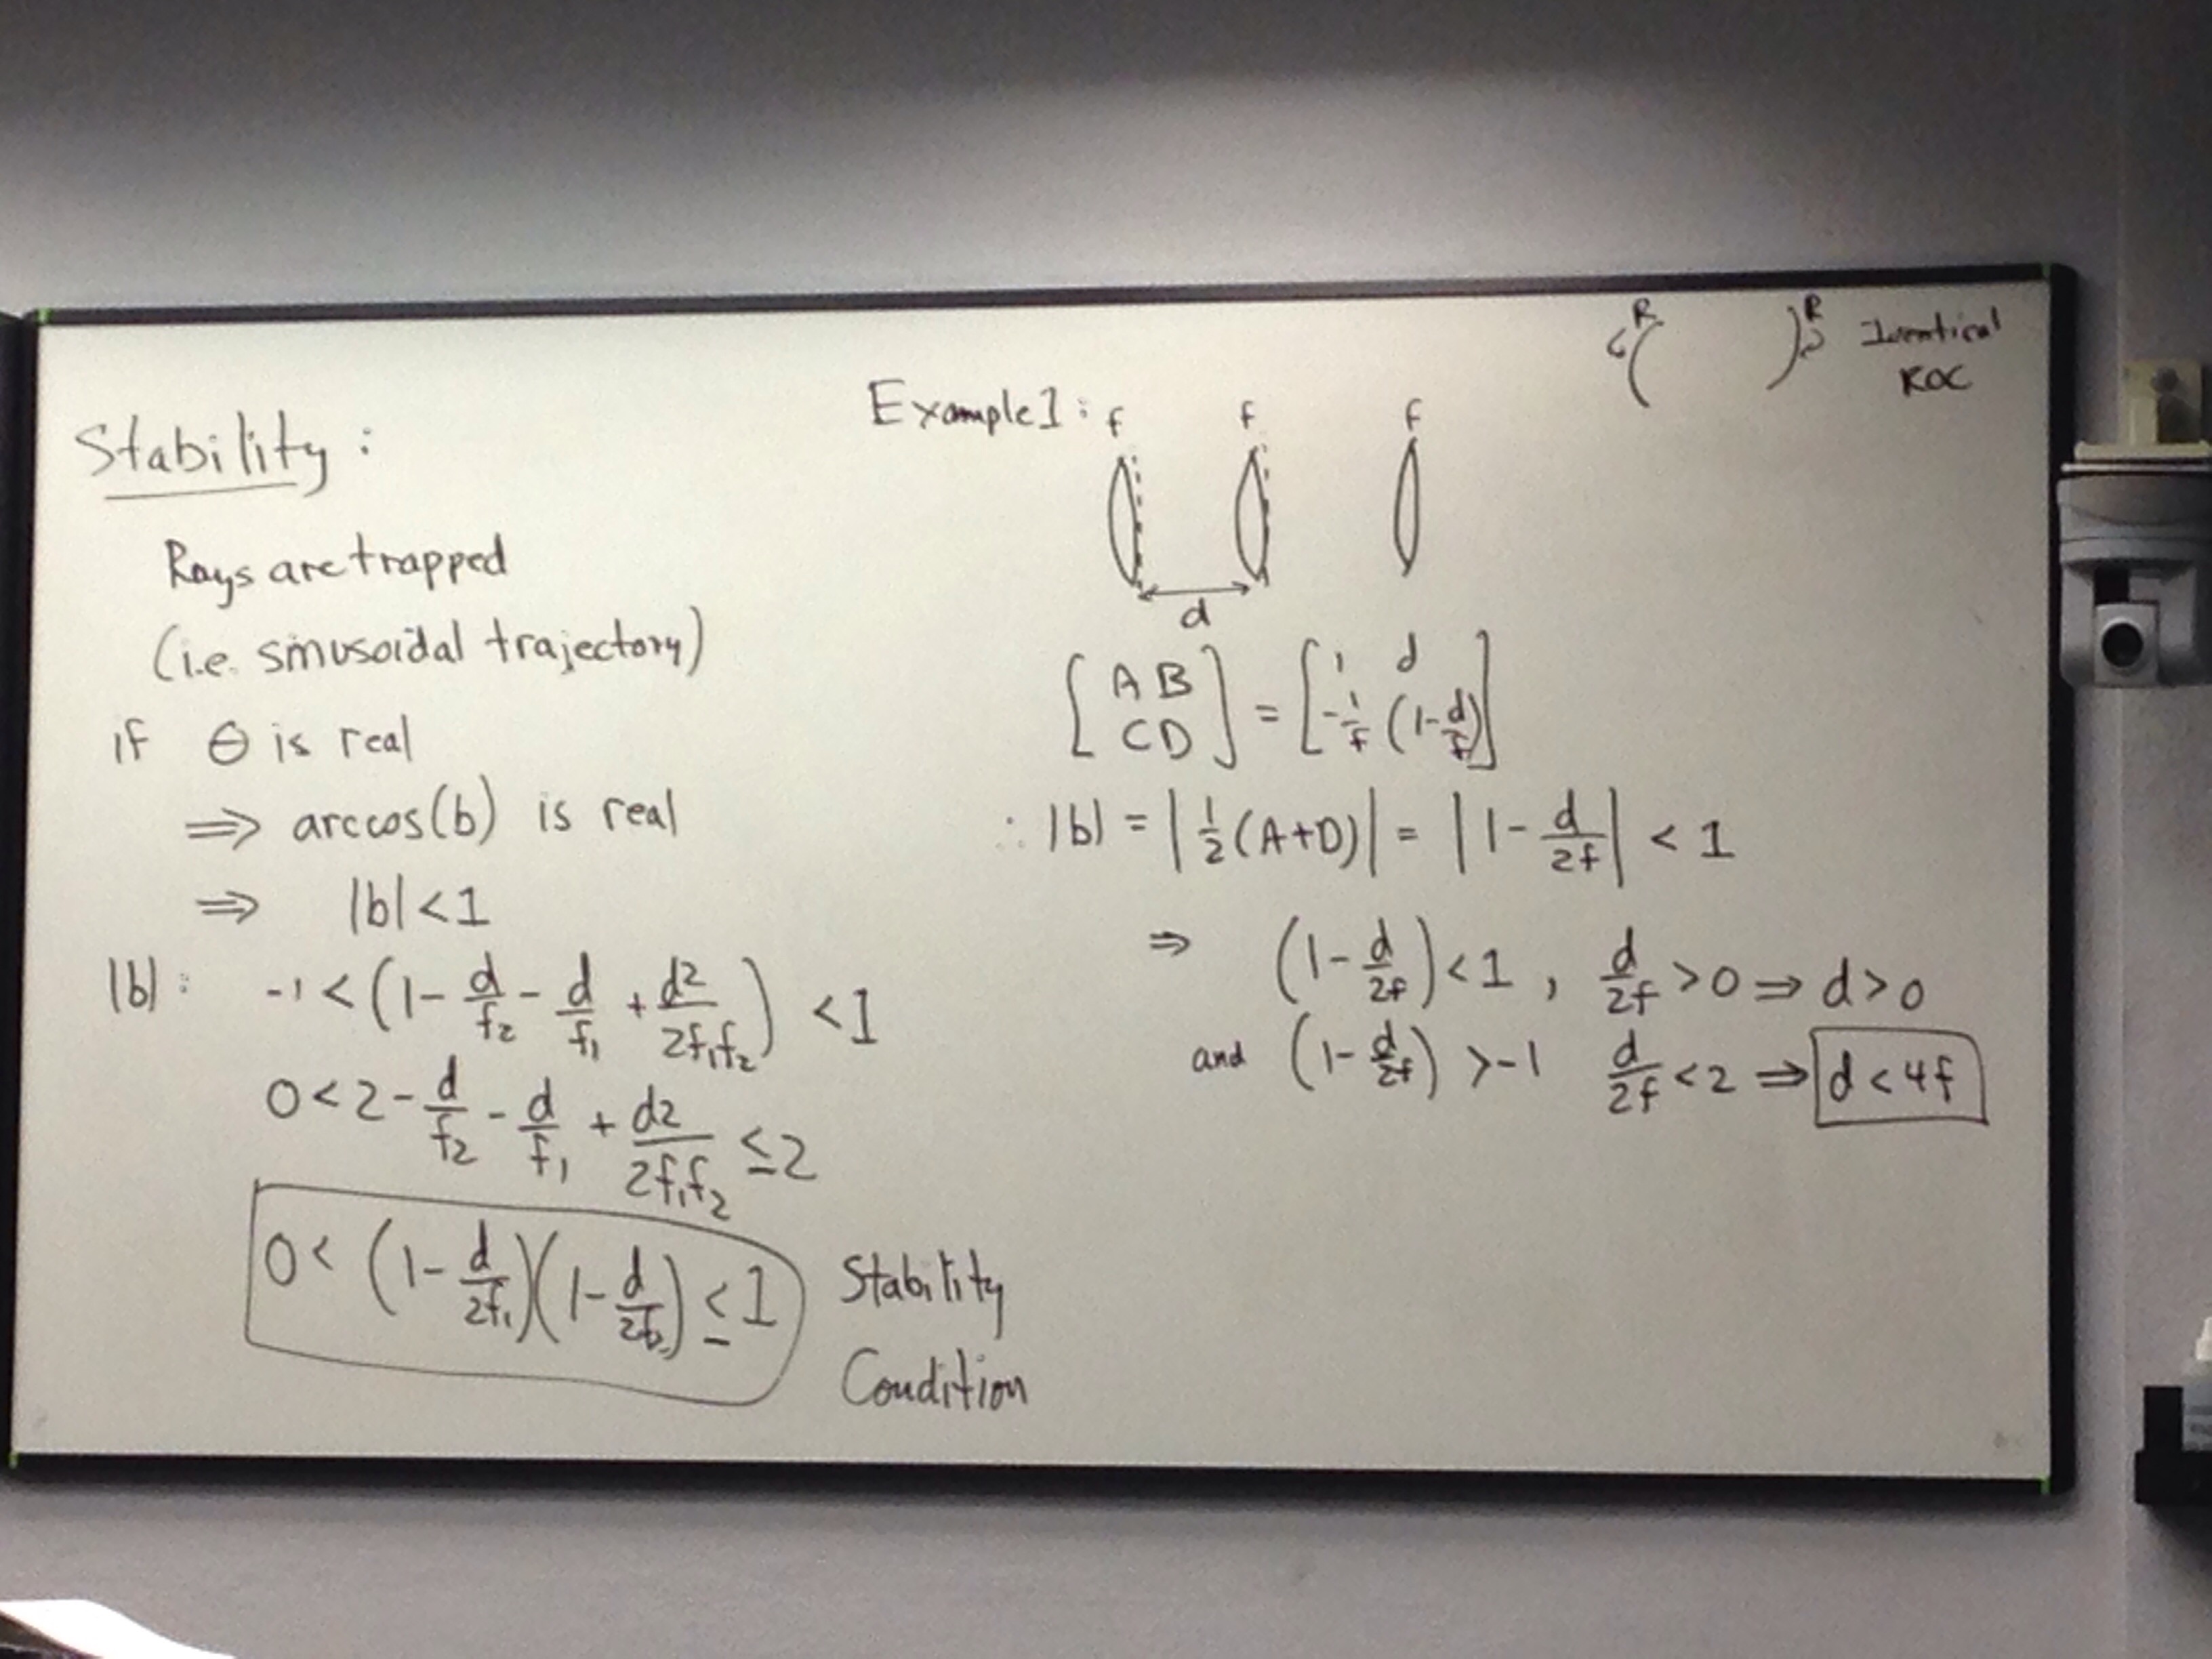 Stability :
Rays are trapped
(i.e. sinusoidal trajectory)
if θ is real
⇒ arccos(b) is real
⇒ |b| < 1
|b| : -1 < (1 - d/f₂ - d/f₁ + d²/2f₁f₂) < 1
0 < 2 - d/f₂ - d/f₁ + d²/2f₁f₂ ≤ 2
0 < (1 - d/2f₁)(1 - d/2f₂) ≤ 1
Stability
Condition
Example 1 :
f f f
d
[A B; C D] = [1 d; -1/f (1 - d/f)]
∴ |b| = |1/2 (A+D)| = |1 - d/2f| < 1
⇒ (1 - d/2f) < 1 , d/2f > 0 ⇒ d > 0
and (1 - d/2f) > -1 d/2f < 2 ⇒ d < 4f
R R Identical
ROC